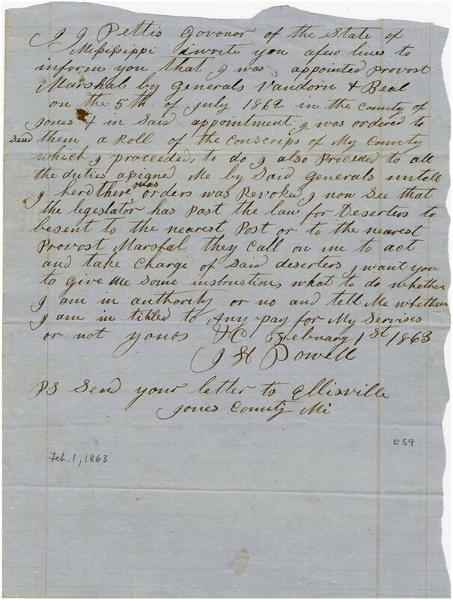 J J Pettis Govonor of the State of
Missisippi I write you a few lines to
inform you that I was appointed Provost
Marshal by Generals Vandorn & Beal
on the 5th of July 1862 in the county of
Jones & in Said appointment I was ordered to
Send them a Roll of the conscrips of My County
which I proceeded, to do I also Proceded to all
the duties asigned Me by Said Generals untill
I herd there was orders was Revoke, I now See that
the legeslator has Past the law for Deserters to
be sent to the nearest Post or to the nearest
Provost Marshal they call on me to act
and take Charge of Said deserters, I want you
to give Me Some instruction, what to do whether
I am in authority or no and tell Me whether
I am in titled to Any pay for My Services
or not yours &C February 1st 1863
J H Powell
PS Send your letter to Ellisville
Jones County Mi
E59
Feb. 1, 1863